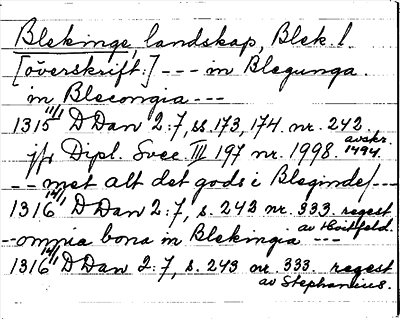 Blekinge, landskap, Blek. l.
[överskrift:] --- in Blegunga.
in Blecongia ---
1315 11/1 D Dan 2:7, ss. 173, 174. nr. 242 avskr. 1494.
jfr Dipl. Svec III 197 nr. 1998.
--- met alt det gods i Bleginde/---
1316 14/11 D Dan 2:7, s. 243 nr. 333. regest av Hvitfeld.
--omnia bona in Blekingia ---
1316 14/11 D Dan 2:7, s. 243 nr. 333. regest
av Stephanius.